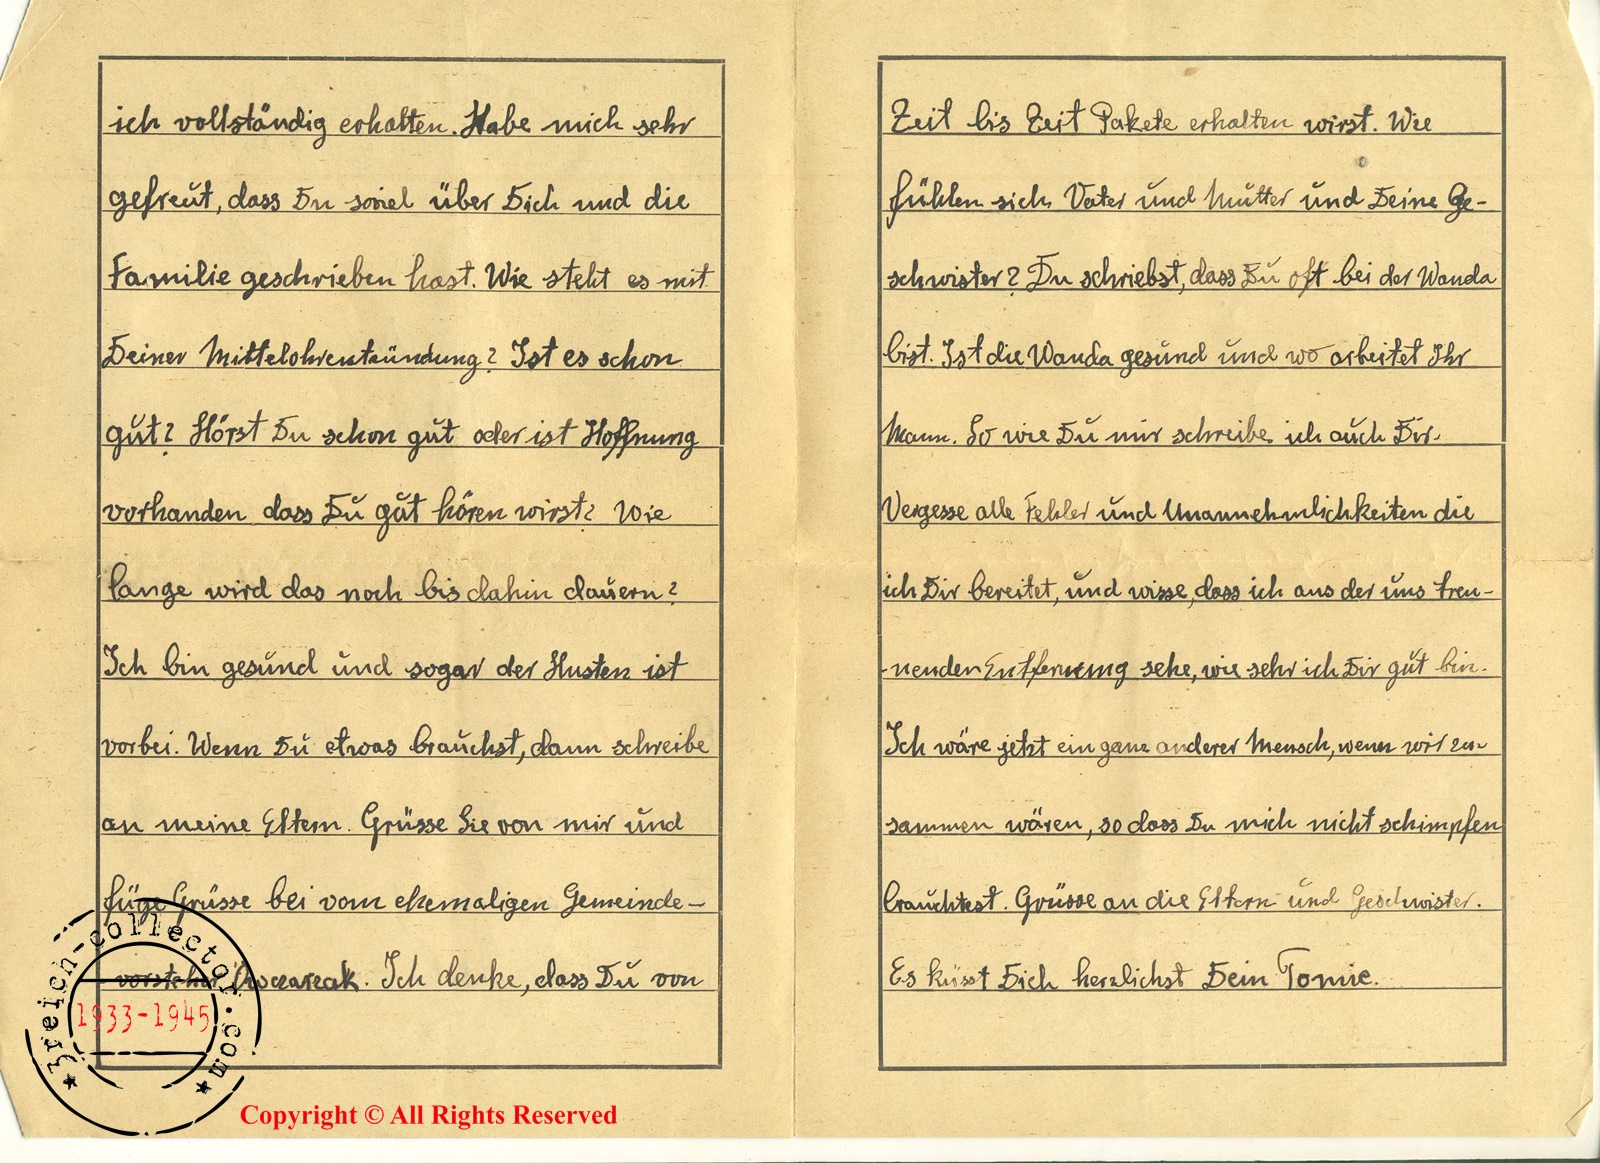 ich vollständig erhalten. Habe mich sehr
gefreut, dass Du soviel über Dich und die
Familie geschrieben hast. Wie steht es mit
Deiner Mittelohrentzündung? Ist es schon
gut? Hörst Du schon gut oder ist Hoffnung
vorhanden dass Du gut hören wirst? Wie
lange wird das noch bis dahin dauern?
Ich bin gesund und sogar der Husten ist
vorbei. Wenn Du etwas brauchst, dann schreibe
an meine Eltern. Grüsse Sie von mir und
füge Grüsse bei vom ehemaligen Gemeinde-
vorsteher. Ich denke, dass Du von
Zeit bis Zeit Pakete erhalten wirst. Wie
fühlen sich Vater und Mutter und Deine Ge-
schwister? Du schriebst, dass Du oft bei der Wanda
bist. Ist die Wanda gesund und wo arbeitet Ihr
Mann. So wie Du mir schreibe ich auch Dir.
Vergesse alle Fehler und Unannehmlichkeiten die
ich Dir bereitet, und wisse, dass ich aus der uns tren-
nenden Entfernung sehe, wie sehr ich Dir gut bin.
Ich wäre jetzt ein ganz anderer Mensch, wenn wir zu-
sammen wären, so dass Du mich nicht schimpfen
brauchtest. Grüsse an die Eltern und Geschwister.
Es küsst Dich herzlichst Dein Tomie.
3reich-collector.com
1933-1945
Copyright © All Rights Reserved